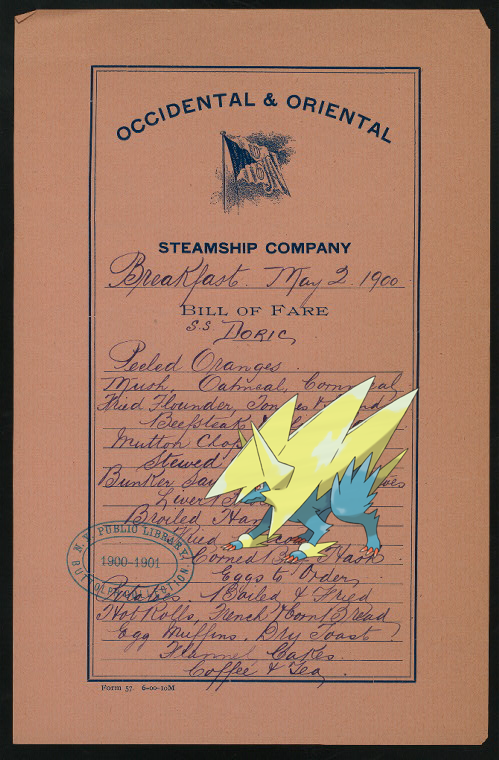 OCCIDENTAL & ORIENTAL
STEAMSHIP COMPANY
Breakfast. May 2. 1900
BILL OF FARE
S.S DORIC
Peeled Oranges.
Mush, Oatmeal, Cornmeal
Fried Flounder,
Beefsteak
Mutton Chop
Stewed
Bunker
Liver
Broiled Ham
Fried
Corned Hash
Eggs to Order
Potatoes. Boiled & Fried
Hot Rolls, French & Corn Bread
Egg Muffins. Dry Toast
Flannel Cakes.
Coffee & Tea
N.Y. PUBLIC LIBRARY
1900-1901
BUTTOLPH COLLECTION.
Form 57 6-00-10M